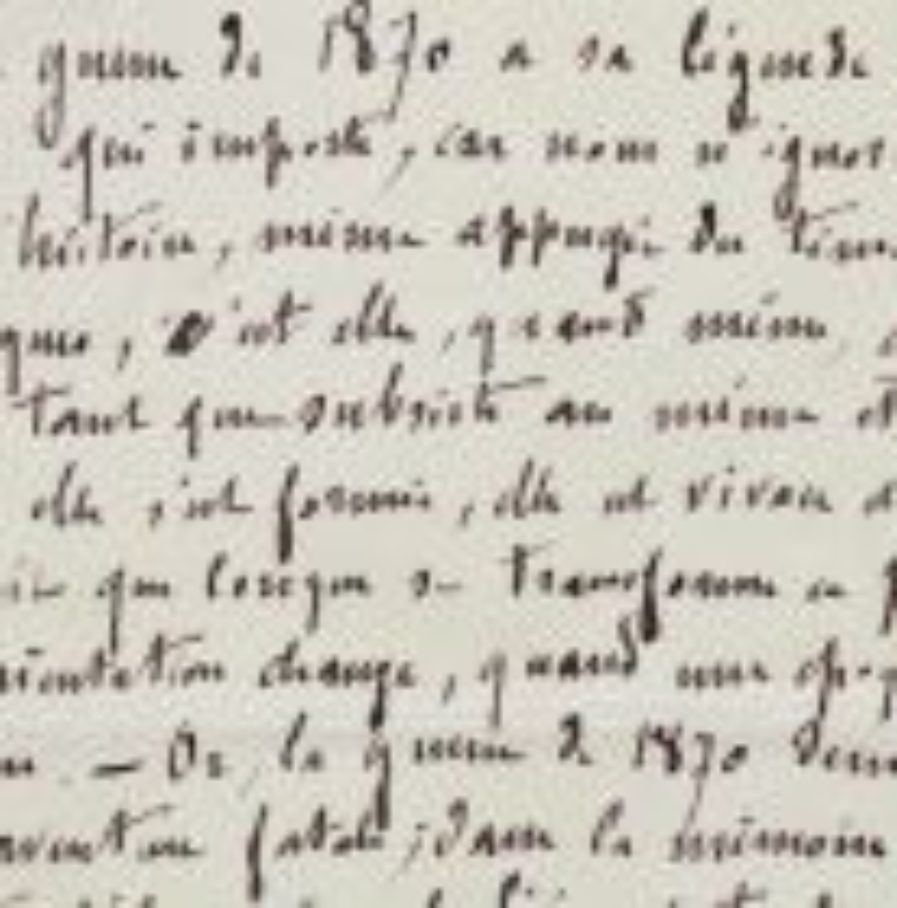 guerre de 1870 a sa légende
qui importe, car nous n'ignor
histoire, même appuyée du tém
ques, c'est elle, quand même,
tant que subsiste au même ét
elle s'est formée, elle est vivace
que lorsque se transforme ce p
rientation change, quand une époq
— Or, la guerre de 1870 deme
rvention fatale ; dans la mémoire